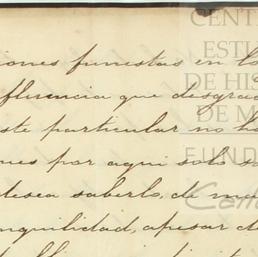 iones funestas en lo
fluencia que desgrac
ste particular no ha
nes por aqui solo so
desea saberlo, de mu
nquilidad, apesar de
CENT
ESTU
DE HIS
DE M
FUND